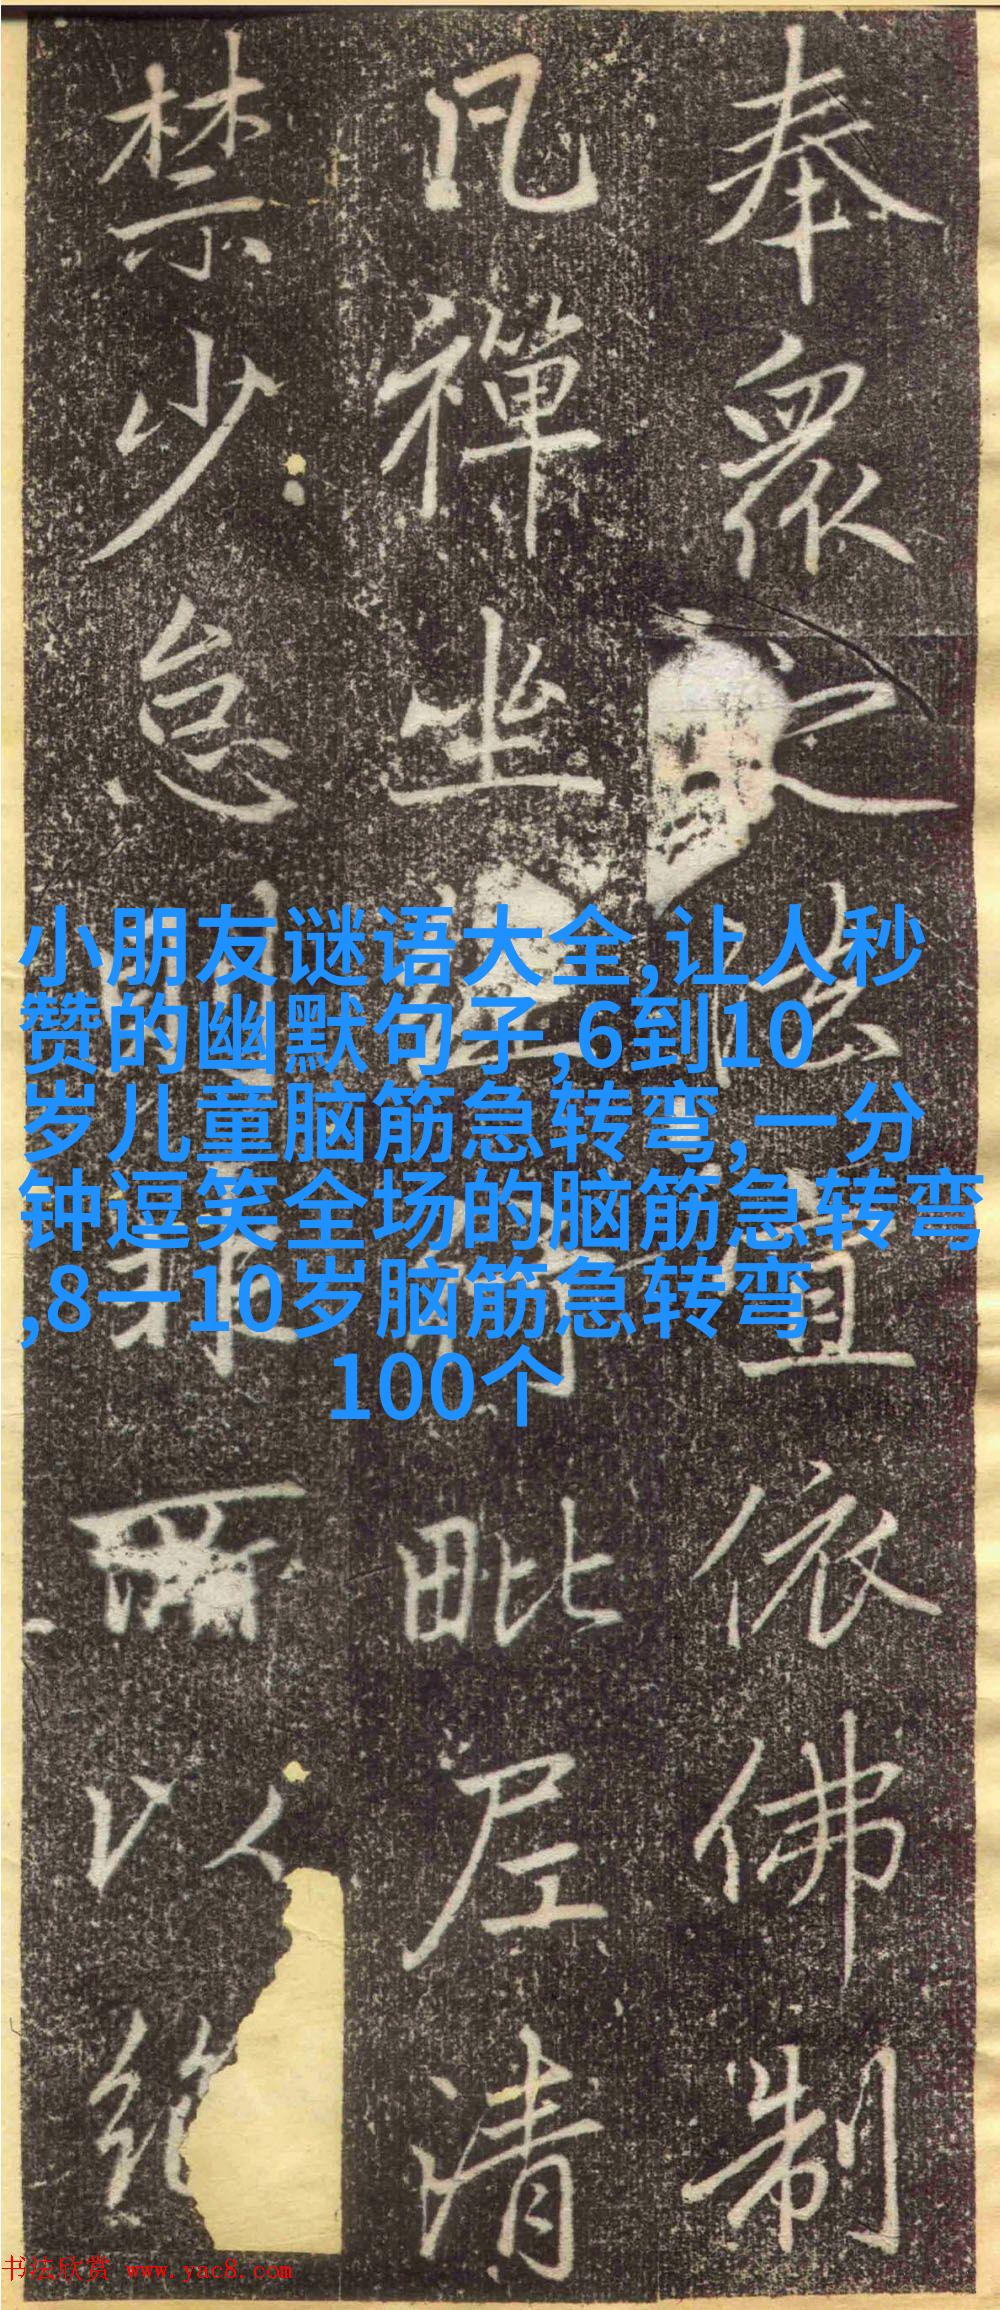 奉眾依佛制
凡禪坐毗尼清
禁少怠以
小朋友谜语大全,让人秒
赞的幽默句子,6到10
岁儿童脑筋急转弯,一分
钟逗笑全场的脑筋急转弯
,8一10岁脑筋急转弯
100个
书法欣赏 www.yac8.com